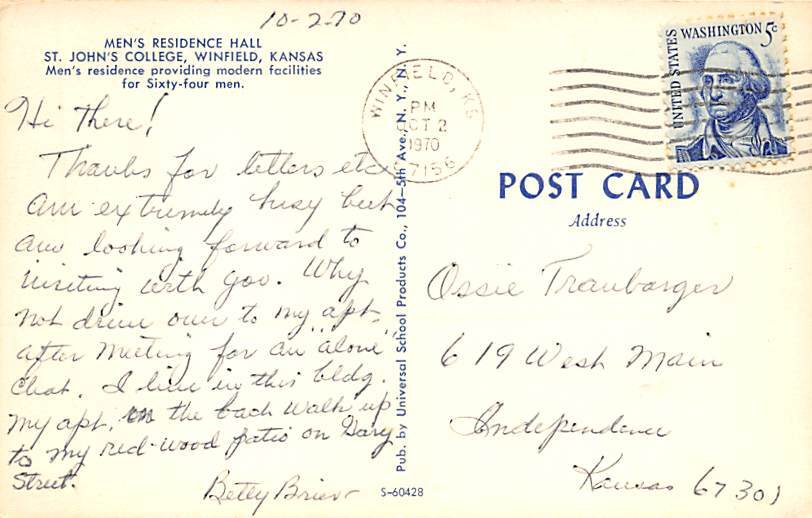 10-2-70
MEN'S RESIDENCE HALL
ST. JOHN'S COLLEGE, WINFIELD, KANSAS
Men's residence providing modern facilities
for Sixty-four men.
Hi There!
Thanks for letters etc
Am extremely busy but
am looking forward to
visiting with you. Why
not drive over to my apt.
after meeting for an "alone"
chat. I live in this bldg.
My apt. in the back walk up
to my red-wood patio on Gary
Street.
Betty
Pub. by Universal School Products Co., 104-5th Ave., N. Y., N. Y.
S-60428
WINFIELD, KS
PM
OCT 2
1970
67156
UNITED STATES
WASHINGTON 5c
POST CARD
Address
Ossie Traubarger
619 West Main
Independence
Kansas 67301